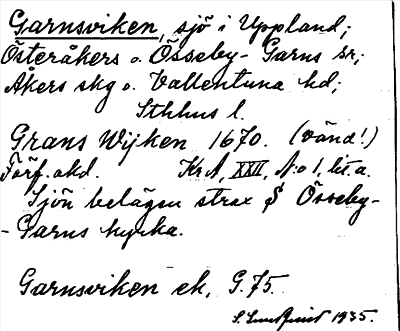 Garnsviken, sjö i Uppland;
Österåkers o. Össeby-Garns sr;
Åkers skg o. Vallentuna hd;
Sthlms l.
Grans Wijken 1670. (vänd!)
Förf. akd. KrA, XXII, N:o 1, lit. a.
Sjön belägen strax S Össeby-
-Garns kyrka.
Garnsviken ek, G. 75.
1935.